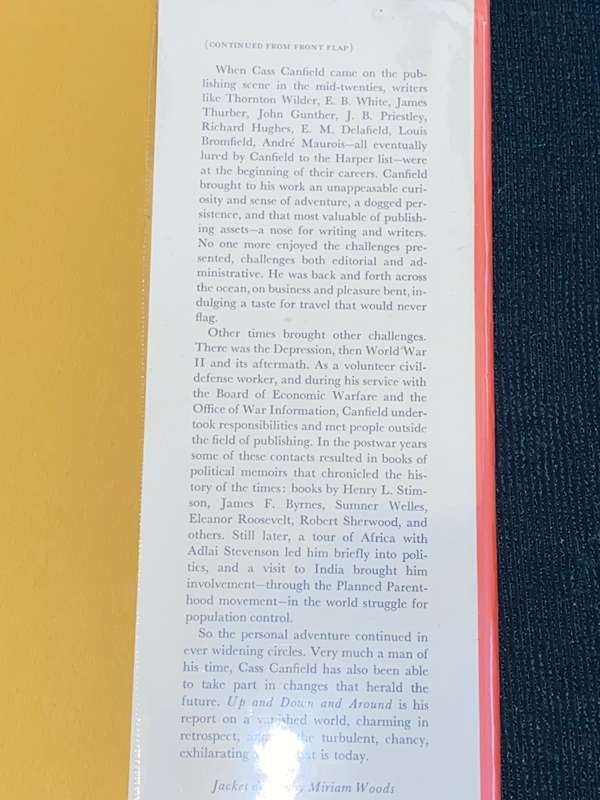 (CONTINUED FROM FRONT FLAP)
When Cass Canfield came on the pub-
lishing scene in the mid-twenties, writers
like Thornton Wilder, E. B. White, James
Thurber, John Gunther, J. B. Priestley,
Richard Hughes, E. M. Delafield, Louis
Bromfield, André Maurois—all eventually
lured by Canfield to the Harper list—were
at the beginning of their careers. Canfield
brought to his work an unappeasable curi-
osity and sense of adventure, a dogged per-
sistence, and that most valuable of publish-
ing assets—a nose for writing and writers.
No one more enjoyed the challenges pre-
sented, challenges both editorial and ad-
ministrative. He was back and forth across
the ocean, on business and pleasure bent, in-
dulging a taste for travel that would never
flag.
Other times brought other challenges.
There was the Depression, then World War
II and its aftermath. As a volunteer civil-
defense worker, and during his service with
the Board of Economic Warfare and the
Office of War Information, Canfield under-
took responsibilities and met people outside
the field of publishing. In the postwar years
some of these contacts resulted in books of
political memoirs that chronicled the his-
tory of the times: books by Henry L. Stim-
son, James F. Byrnes, Sumner Welles,
Eleanor Roosevelt, Robert Sherwood, and
others. Still later, a tour of Africa with
Adlai Stevenson led him briefly into poli-
tics, and a visit to India brought him
involvement—through the Planned Parent-
hood movement—in the world struggle for
population control.
So the personal adventure continued in
ever widening circles. Very much a man of
his time, Cass Canfield has also been able
to take part in changes that herald the
future. Up and Down and Around is his
report on a vanished world, charming in
retrospect, the turbulent, chancy,
exhilarating is today.
Jacket by Miriam Woods